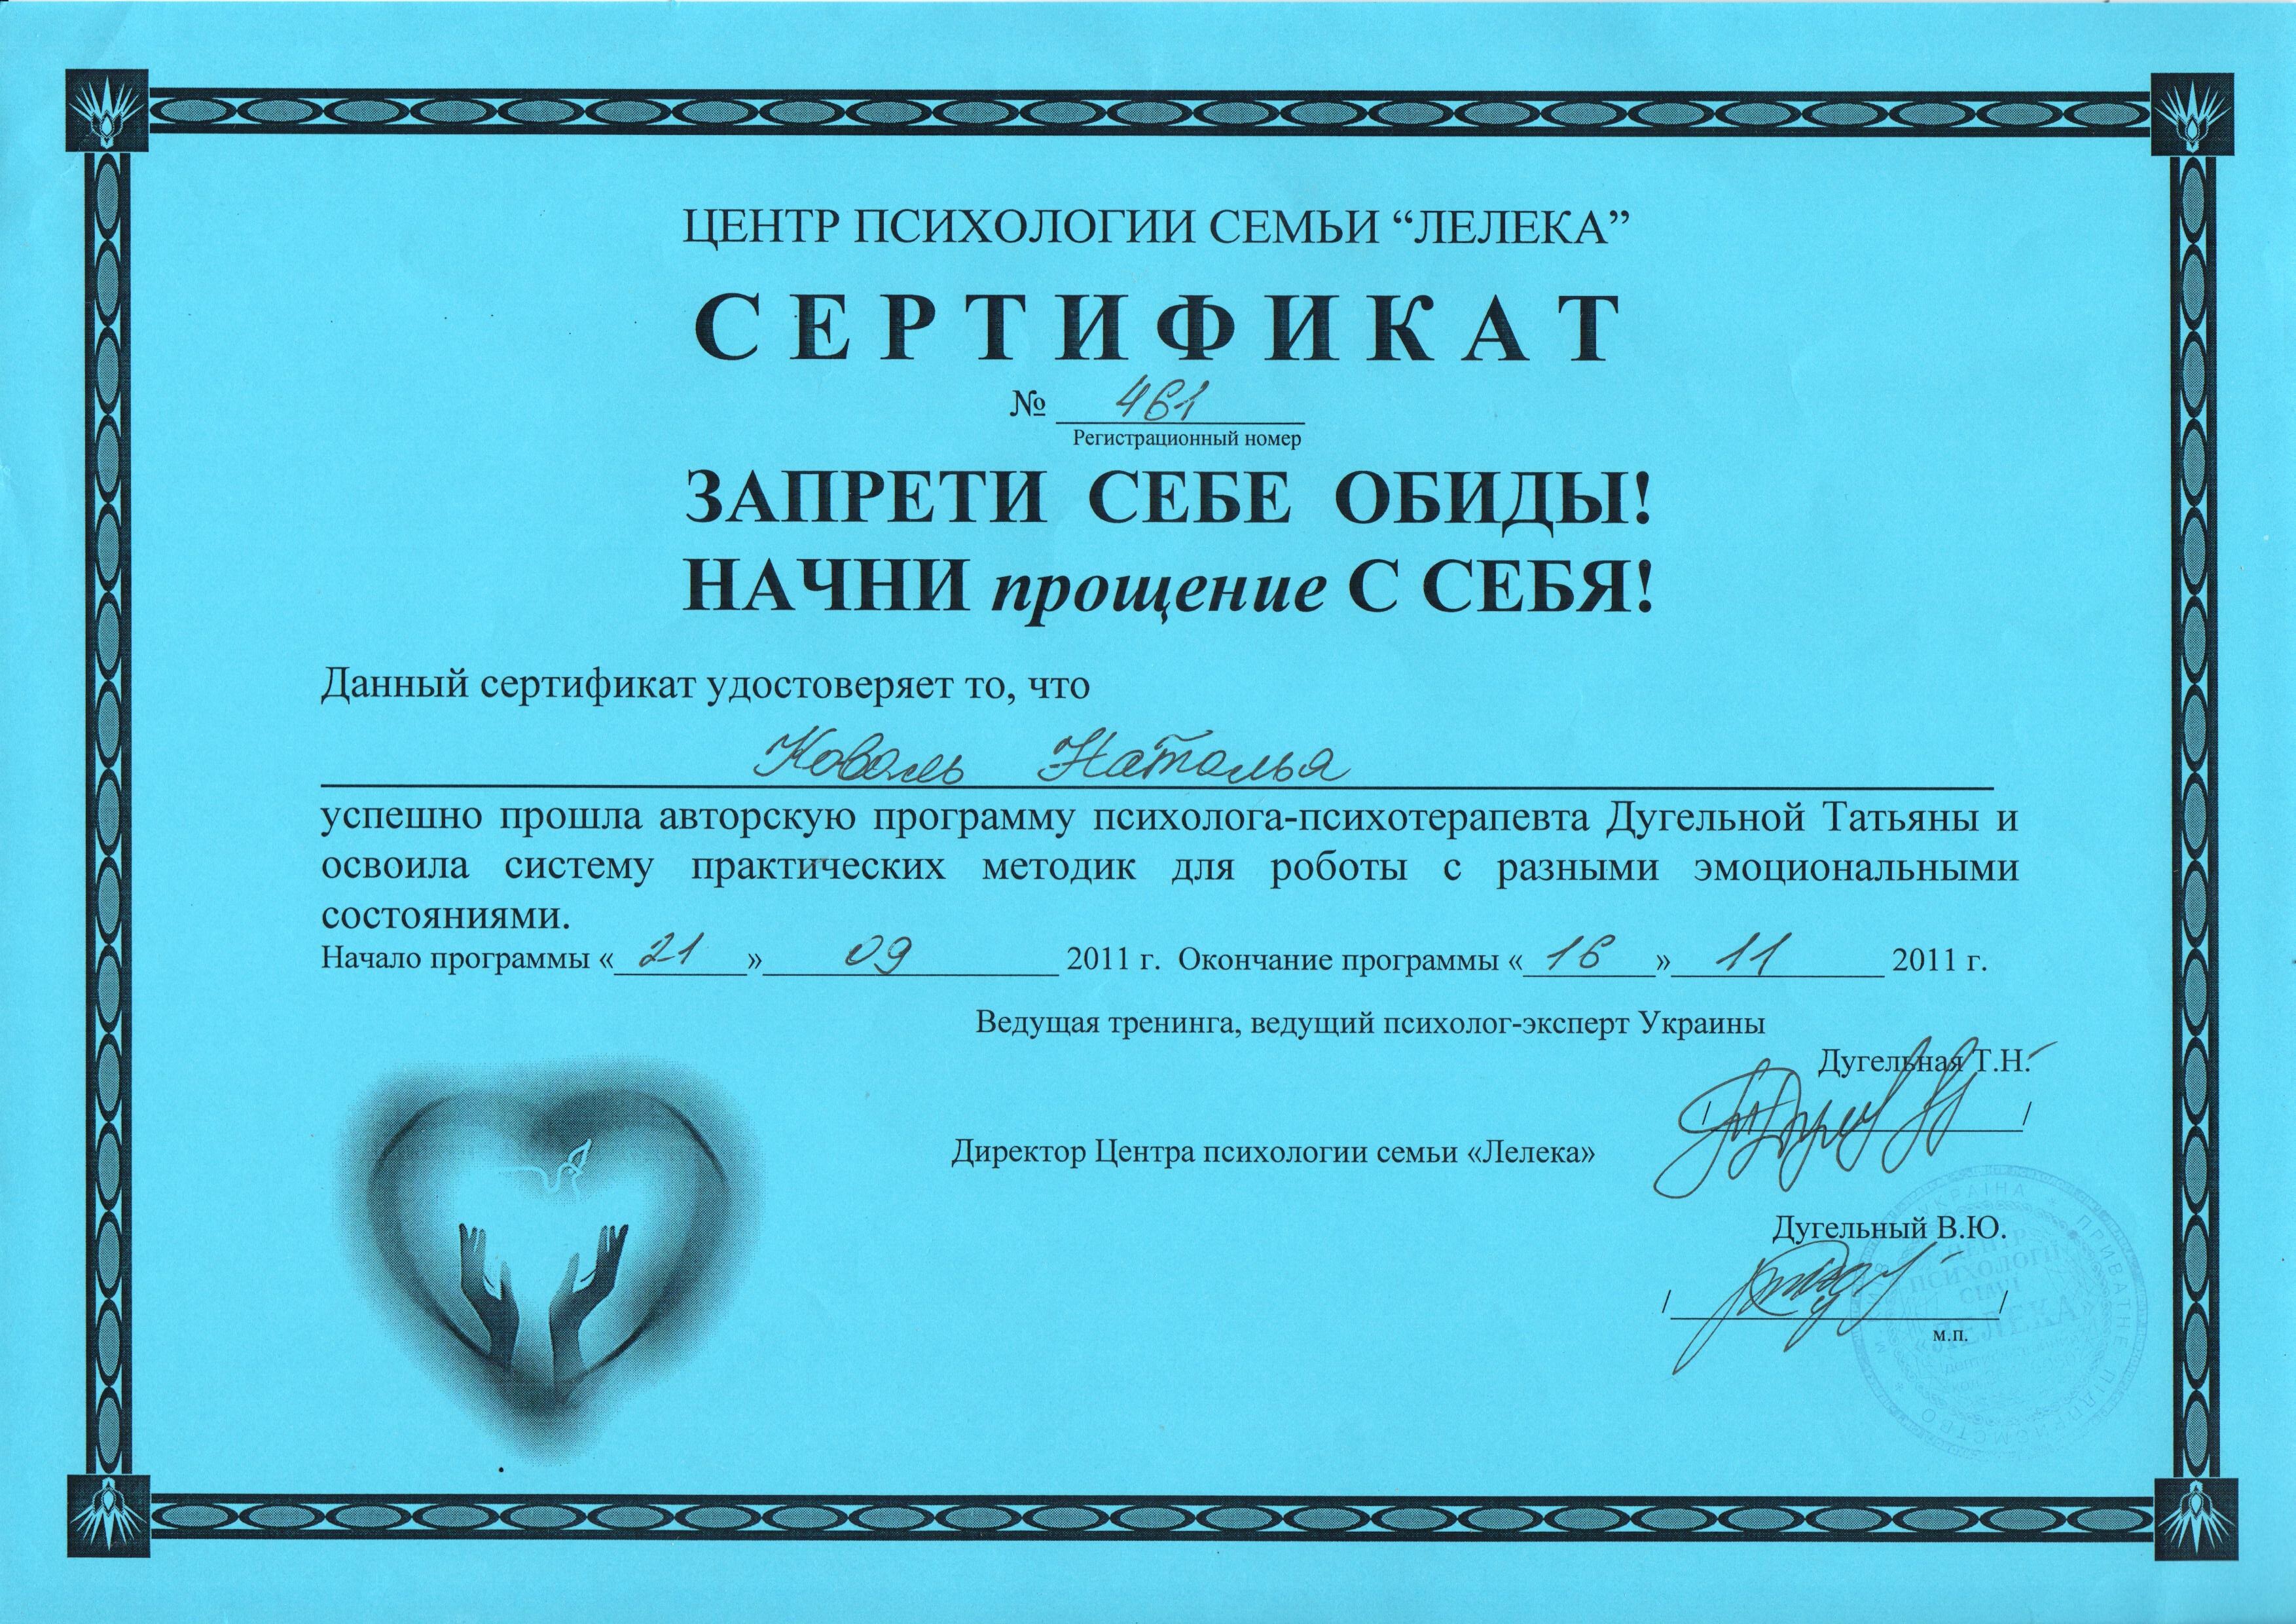 ЦЕНТР ПСИХОЛОГИИ СЕМЬИ “ЛЕЛЕКА”
СЕРТИФИКАТ
№ 461
Регистрационный номер
ЗАПРЕТИ СЕБЕ ОБИДЫ!
НАЧНИ прощение С СЕБЯ!
Данный сертификат удостоверяет то, что
Коваль Наталья
успешно прошла авторскую программу психолога-психотерапевта Дугельной Татьяны и
освоила систему практических методик для роботы с разными эмоциональными
состояниями.
Начало программы « 21 » 09 2011 г. Окончание программы « 16 » 11 2011 г.
Ведущая тренинга, ведущий психолог-эксперт Украины
Дугельная Т.Н.
/ /
Директор Центра психологии семьи «Лелека»
Дугельный В.Ю.
/ /
м.п.
УКРАЇНА * ПРИВАТНЕ ПІДПРИЄМСТВО *
ЦЕНТР
ПСИХОЛОГІЇ
СІМ'Ї
«ЛЕЛЕКА»